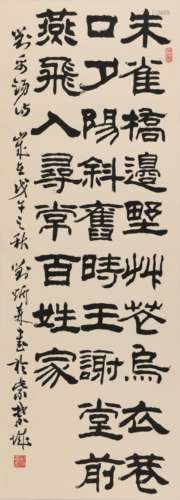 朱雀橋邊墅艸花烏衣巷
口夕陽斜舊時王謝堂前
燕飛入尋常百姓家
劉禹錫詩 歲在戊午之秋 劉炳森書於紫禁城